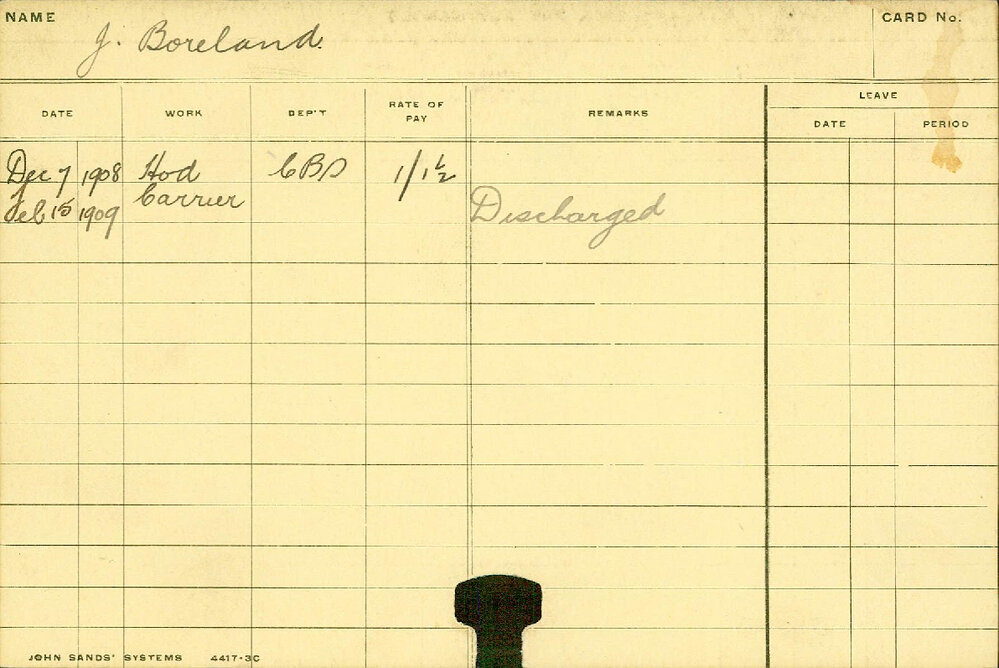 NAME J. Boreland. CARD No.
LEAVE
DATE WORK DEP'T RATE OF PAY REMARKS DATE PERIOD
Dec 7 1908 Hod CBD 1/1½
Feb 15 1909 Carrier Discharged
JOHN SANDS' SYSTEMS 4417-3C